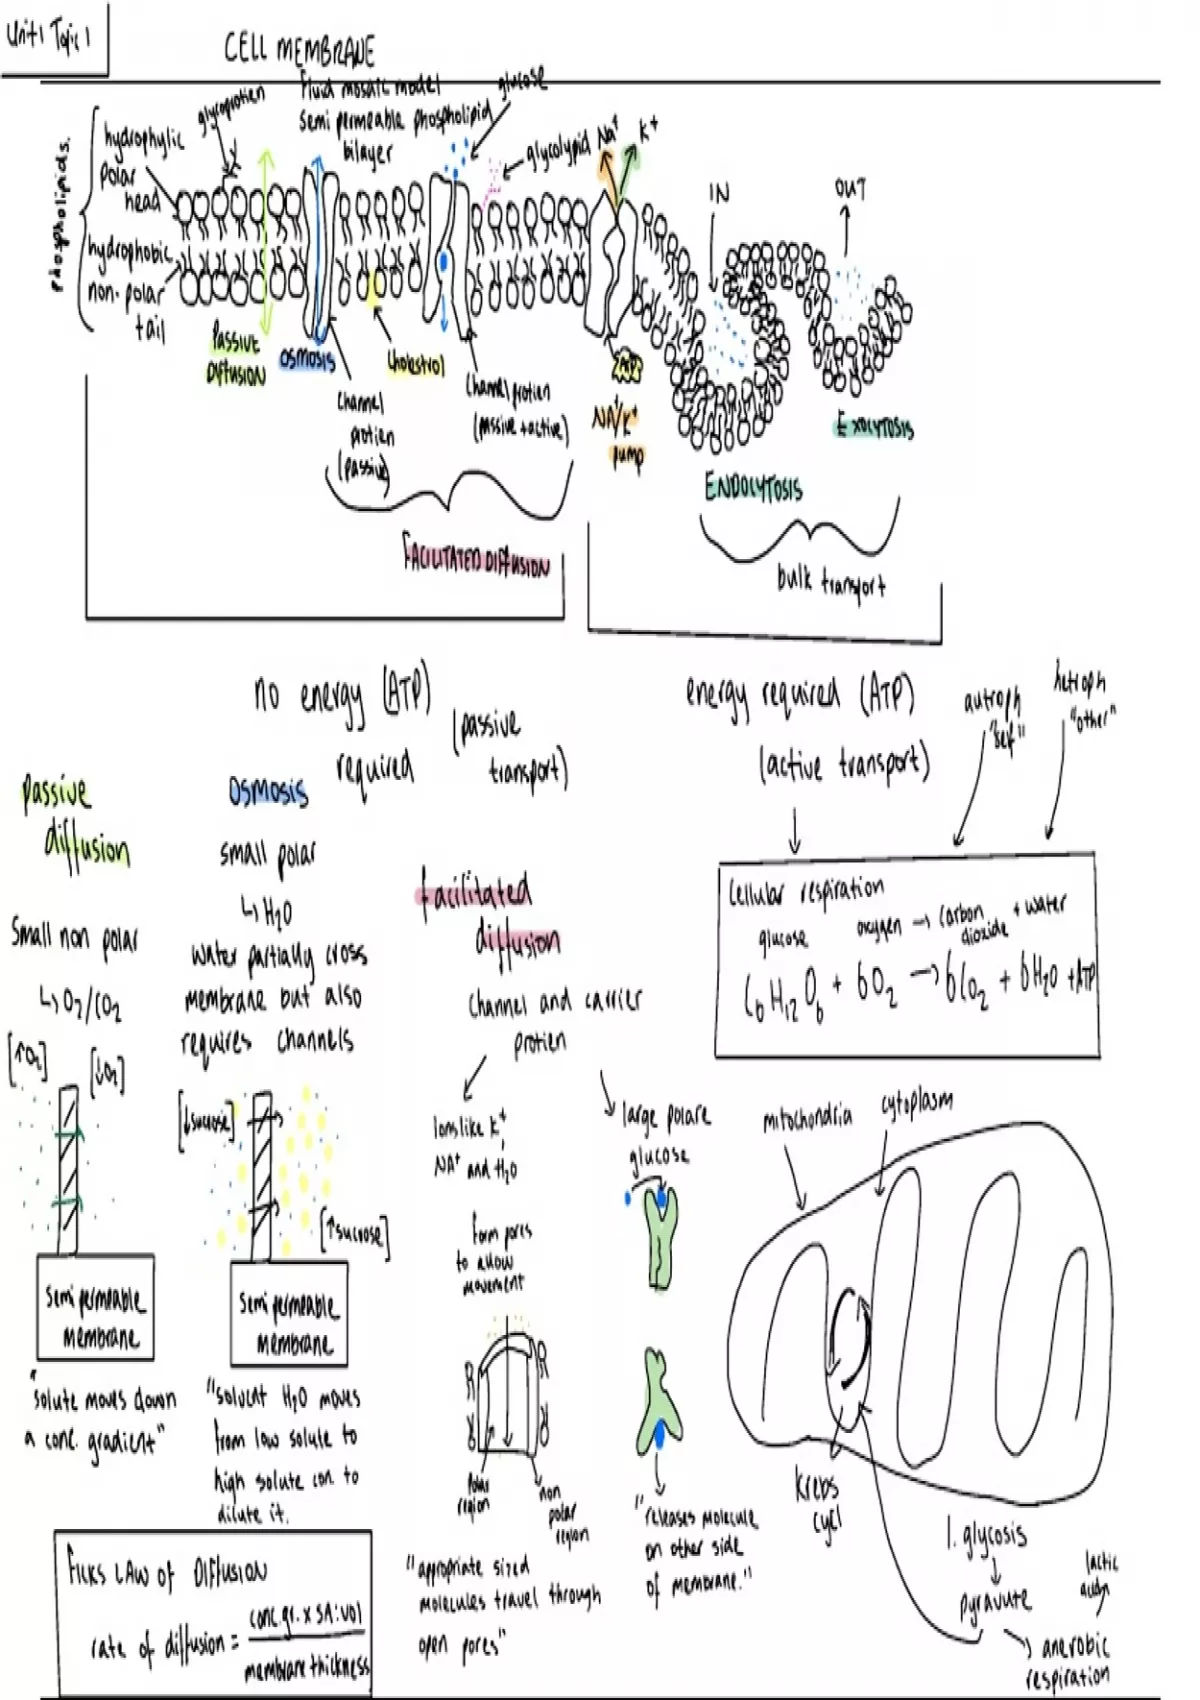 Unit 1 Topic 1
CELL MEMBRANE
Fluid mosaic model
Semi permeable phospholipid
bilayer
glucose
glycoprotien
glycolypid
Na+
K+
Phospholipids.
hydrophylic
polar
head
hydrophobic
non-polar
tail
IN
OUT
Passive
Diffusion
Osmosis
Cholestrol
Channel
protien
(passive)
Channel protien
(passive + active)
ATP
NA+/K+
pump
ENDOCYTOSIS
EXOCYTOSIS
FACILITATED DIFFUSION
bulk transport
no energy (ATP)
required
(passive
transport)
energy required (ATP)
(active transport)
autroph
"self"
hetroph
"other"
Passive
diffusion
Small non polar
↳ O2/CO2
[↑O2]
[↓O2]
Semi permeable
membrane
"solute moves down
a conc. gradient"
Osmosis
small polar
↳ H2O
water partially cross
membrane but also
requires channels
[↓sucrose]
[↑sucrose]
Semi permeable
membrane
"solvent H2O moves
from low solute to
high solute con to
dilute it.
facilitated
diffusion
Channel and carrier
protien
Ions like K+
NA+ and H2O
form pores
to allow
movement
Polar
region
non
polar
region
"appropriate sized
molecules travel through
open pores"
large polare
glucose
"releases molecule
on other side
of membrane."
Cellular respiration
glucose
oxygen → carbon
dioxide
+ water
C6H12O6 + 6O2 → 6CO2 + 6H2O + ATP
mitochondria
cytoplasm
Krebs
cycl
1. glycosis
↓
pyravute
lactic
→ anerobic
respiration
FICKS LAW OF DIFFUSION
rate of diffusion = conc.gr. x SA:vol
membrane thickness